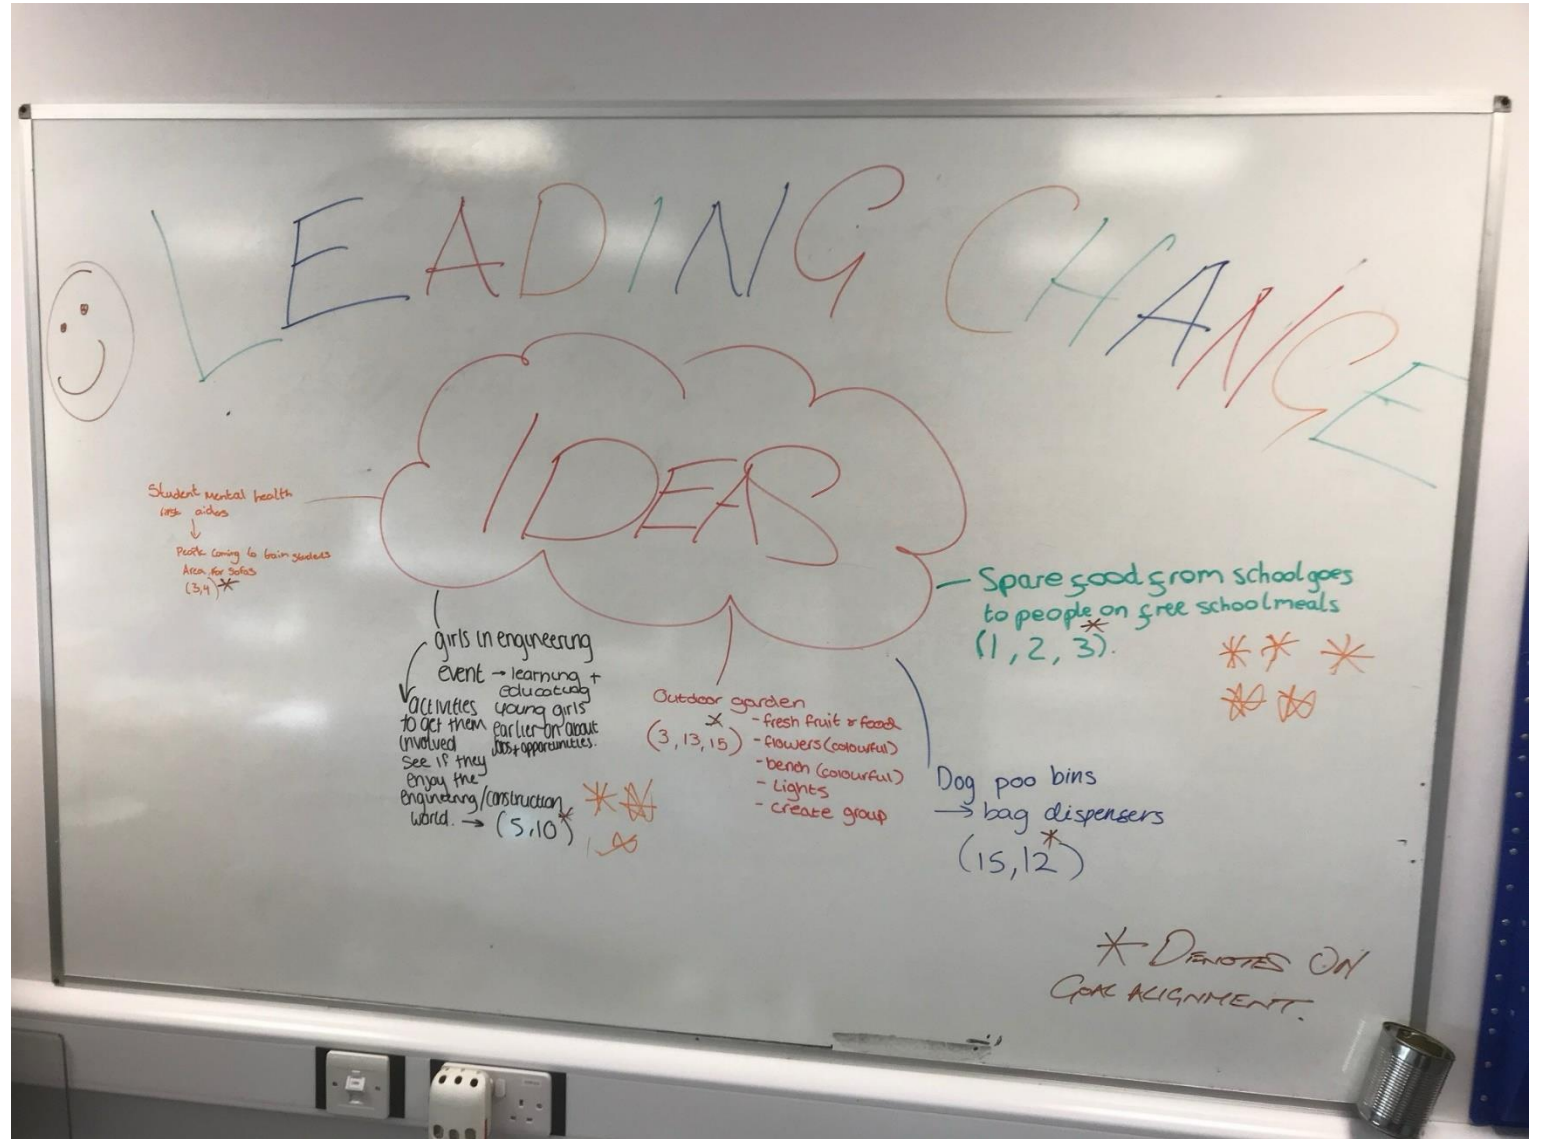 LEADING CHANGE
IDEAS
Student Mental health
first aiders
↓
People coming to train students
Area for sofas
(3,4)*
girls in engineering
event → learning +
educating
young girls
earlier on about
jobs + opportunities.
activities
to get them
involved
see if they
enjoy the
engineering/construction
world. → (5,10)*
Outdoor garden
(3,13,15)*
- fresh fruit & food
- flowers (colourful)
- bench (colourful)
- Lights
- create group
Spare food from school goes
to people on free school meals
(1, 2, 3)*.
Dog poo bins
→ bag dispensers
(15,12)*
* DENOTES ON
GOAL ALIGNMENT.